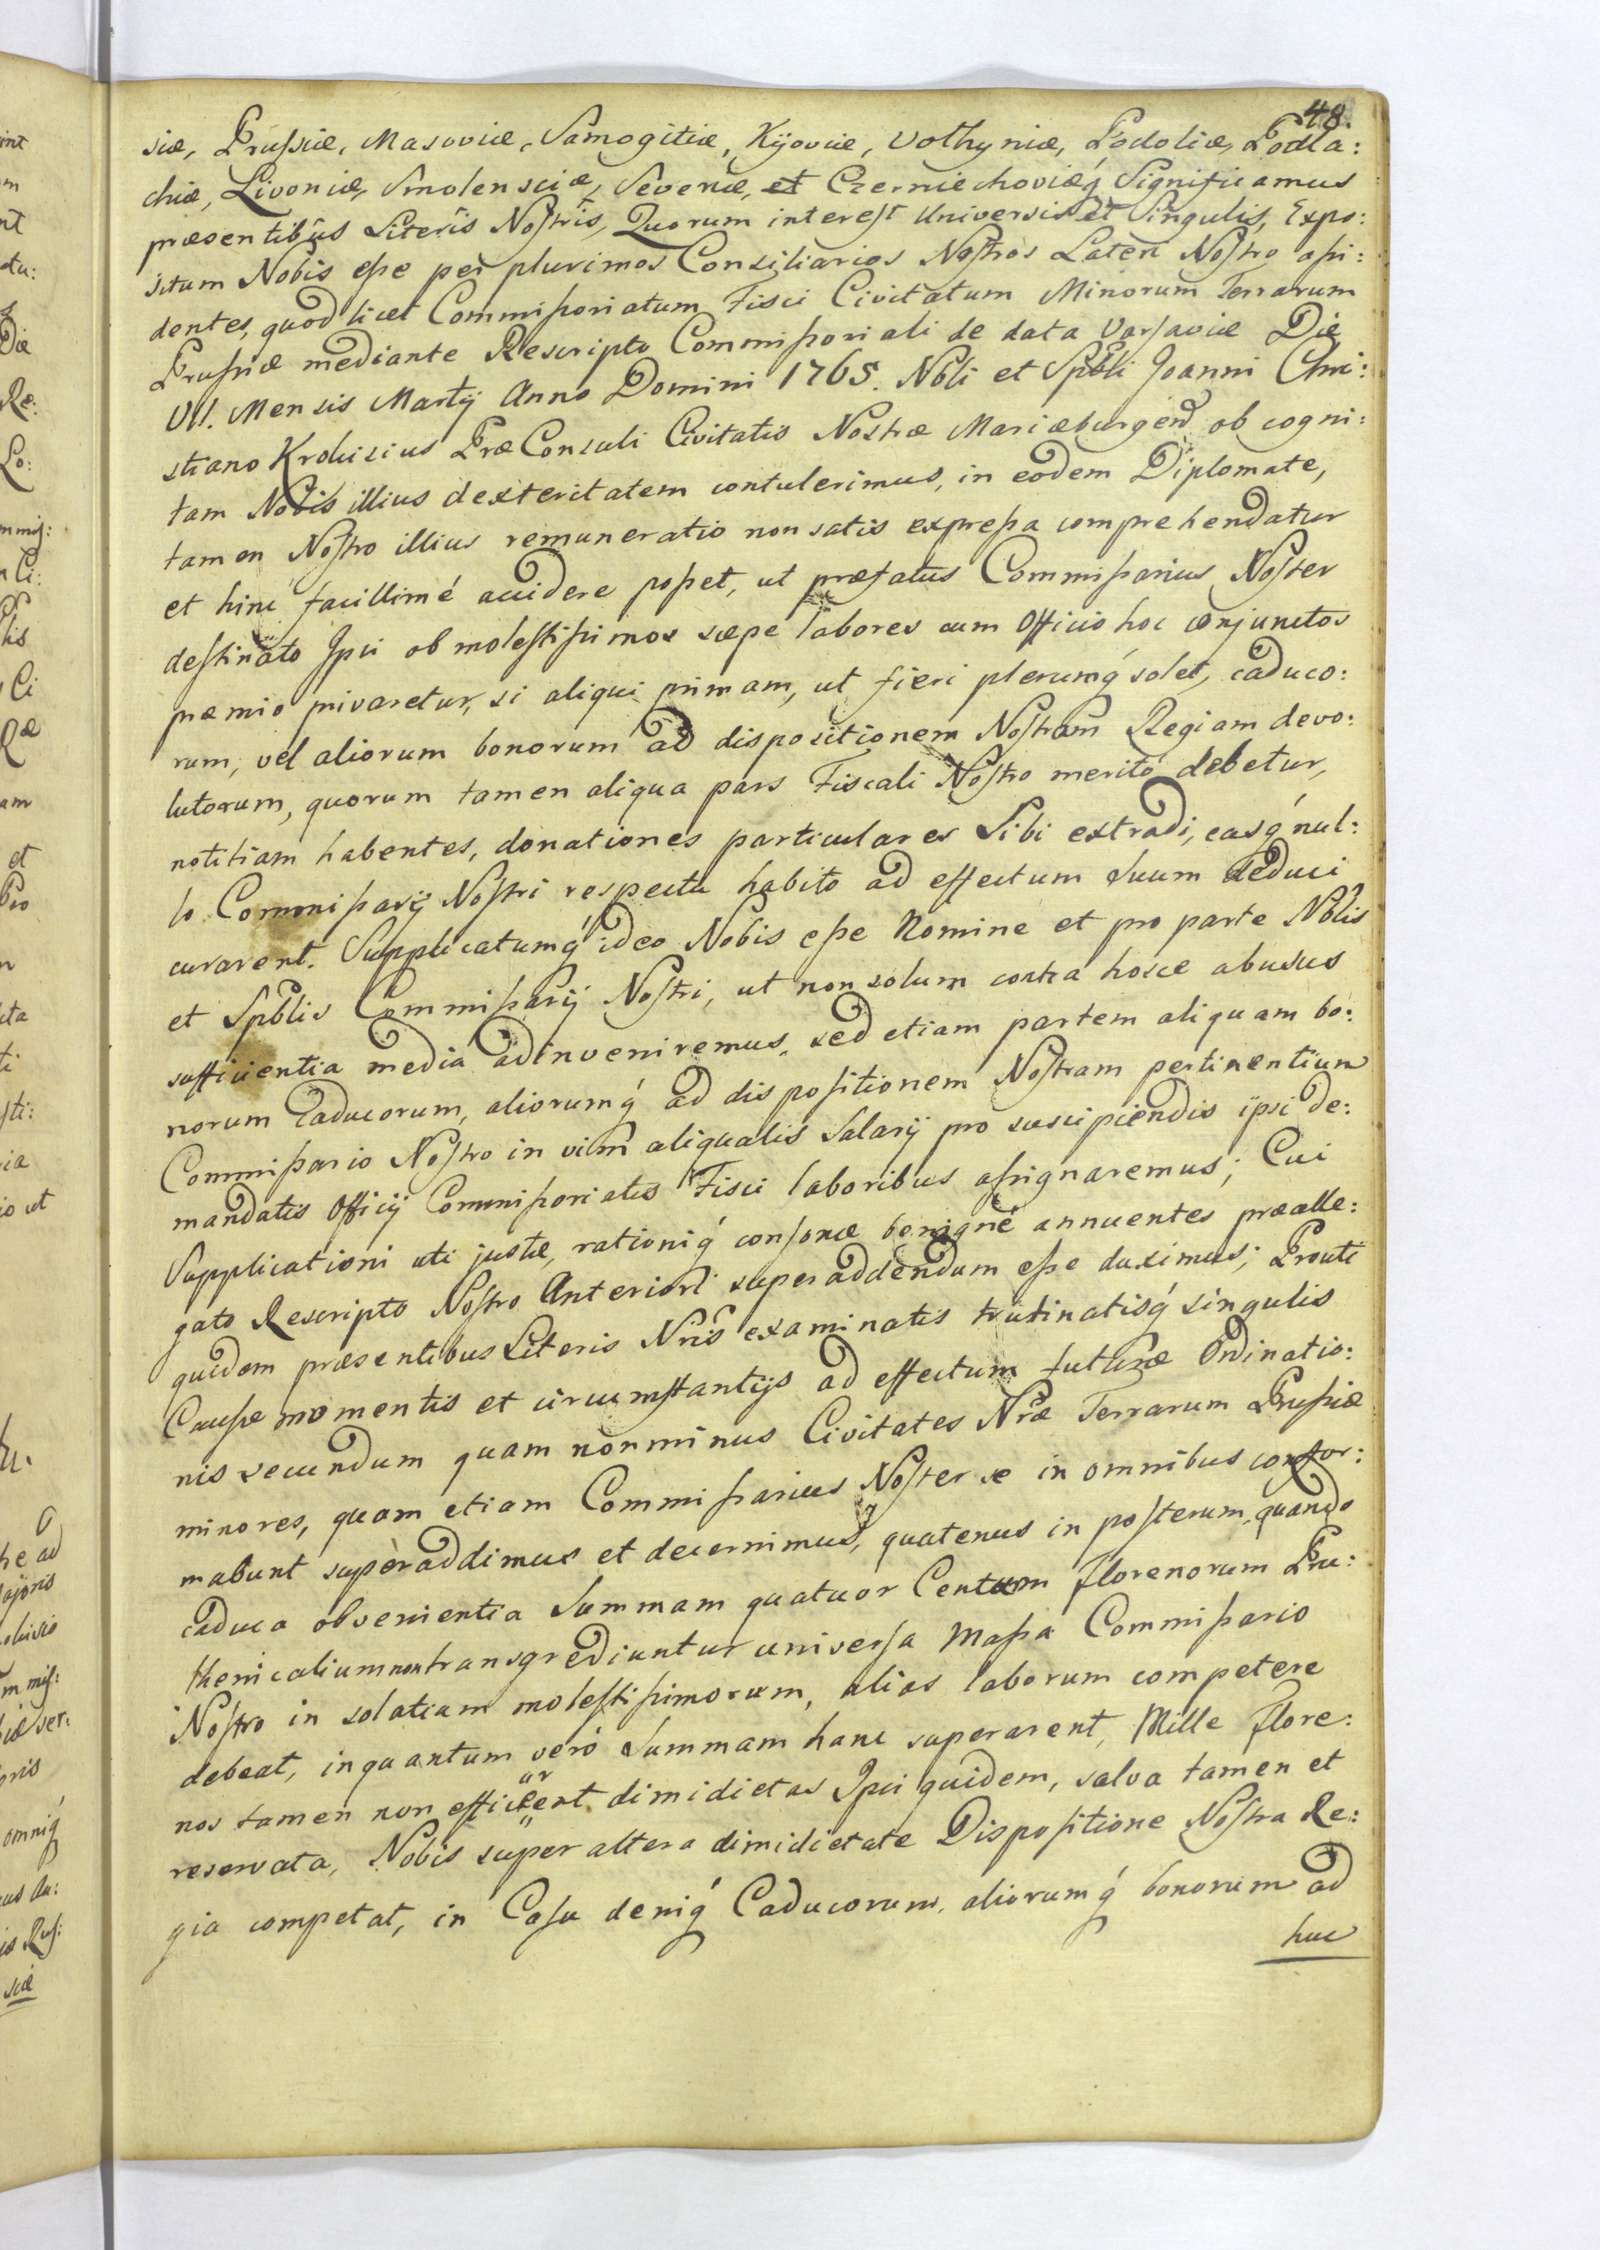 48.
siæ, Prussiæ, Masoviæ, Samogitiæ, Kijoviæ, Volhyniæ, Podoliæ, Podla:
chiæ, Livoniæ, Smolensciæ, Severiæ, et Czerniechoviæq́ Significamus
præsentibûs Literis Nostris, Quorum interest Universis et Singulis, Expo:
situm Nobis esse per plurimos Consiliarios Nostros Lateri Nostro assi:
dentes, quod licet Commissoriatum Fisci Civitatum Minorum Terrarum
Prussiæ mediante Rescripto Commissoriali de data Varsaviæ Die
VII. Mensis Martij Anno Domini 1765. Nbli et Spbli Joanni Chri:
stiano Krohisius PræConsuli Civitatis Nostræ Mariæburgen̄ ob cogni:
tam Nobis illius dexteritatem contulerimus, in eodem Diplomate,
tamen Nostro illius remuneratio non satis expressa comprehendatur
et hinc facillimé accidere posset, ut præfatus Commissarius Noster
destinato Ipsi ob molestissimos sæpe labores cum Officio hoc conjunctos
præmio privaretur, si aliqui primam, ut fieri plerumq́ solet, caduco:
rum, vel aliorum bonorum ad dispositionem Nostram Regiam devo:
lutorum, quorum tamen aliqua pars Fiscali Nostro meritó debetur,
notitiam habentes, donationes particulares Sibi extradi, easq́ nul:
lo Commissarij Nostri respectu habito ad effectum Suum deduci
curarent. Supplicatumq́ ideo Nobis esse Nomine et pro parte Nblis
et Spblis Commissarij Nostri, ut non solum contra hosce abusus
sufficientia media adinveniremus, sed etiam partem aliquam bo:
norum Caducorum, aliorumq́ ad dispositionem Nostram pertinentium
Commissario Nostro in vim aliqualis Salarij pro suscipiendis ipsi de:
mandatis Officij Commissoriatus Fisci laboribus assignaremus; Cui
Supplicationi uti justæ, rationiq́ consonæ benigné annuentes præalle:
gato Rescripto Nostro Anteriori superaddendum esse duximus; Prouti
quidem præsentibus Literis Nris̄ examinatis trutinatisq́ singulis
Causæ momentis et circumstantijs ad effectum futuræ Ordinatio:
nis secundum quam nonminus Civitates Nr̄æ Terrarum Prussiæ
minores, quam etiam Commissarius Noster se in omnibus confor:
mabunt superaddimus et decernimus, quatenus in posterum, quando
caduca obvenientia Summam quatuor Centum florenorum Pru:
thenicalium non transgrediuntur universa Massa Commissario
Nostro in solatium molestissimorum, alias laborum competere
debeat, inquantum veró Summam hanc superarent, Mille flore:
nos tamen non efficerent dimidietas Ipsi quidem, salva tamen et
reservata, Nobis super altera dimidietate Dispositione Nostra Re:
gia competat, in Casu deniq́ Caducorum, aliorumq́ bonorum ad
huc